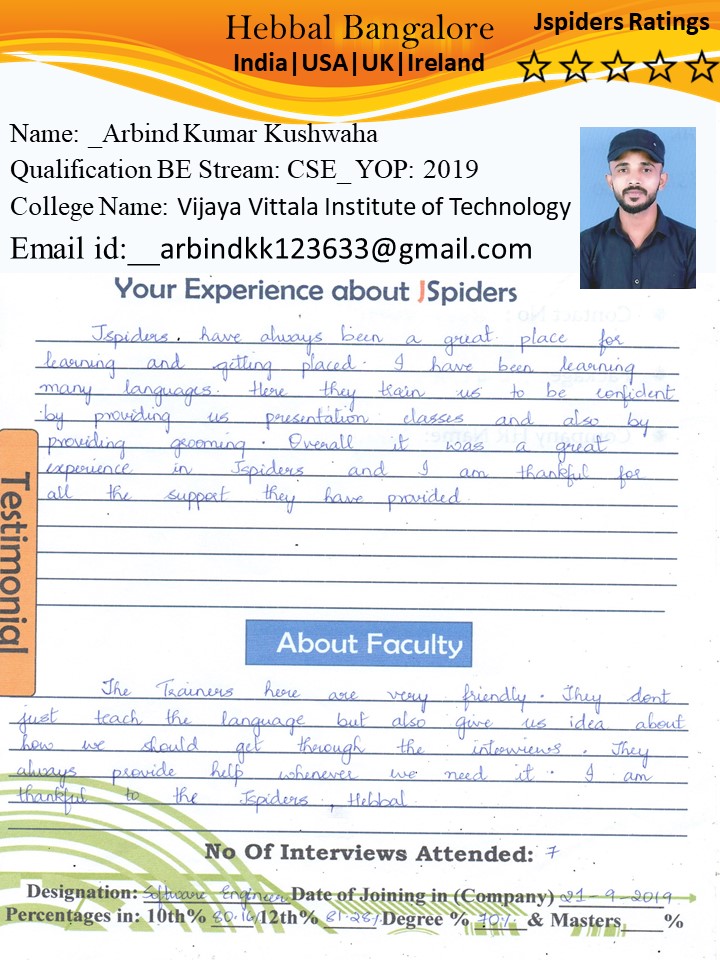 Hebbal Bangalore
India|USA|UK|Ireland
Jspiders Ratings
Name: _Arbind Kumar Kushwaha
Qualification BE Stream: CSE_ YOP: 2019
College Name: Vijaya Vittala Institute of Technology
Email id:__arbindkk123633@gmail.com
Your Experience about JSpiders
Jspiders. have always been a great place for
learning and getting placed. I have been learning
many languages. Here they train us to be confident
by providing us presentation classes and also by
providing grooming. Overall it was a great
experience in Jspiders and I am thankful for
all the support they have provided.
Testimonial
About Faculty
The Trainers here are very friendly. They dont
just teach the language but also give us idea about
how we should get through the interviews. They
always provide help whenever we need it. I am
thankful to the Jspiders, Hebbal.
No Of Interviews Attended: 7
Designation: Software Engineer Date of Joining in (Company) 21-9-2019
Percentages in: 10th% 80.16/ 12th% 81.28% Degree % 70% & Masters____%